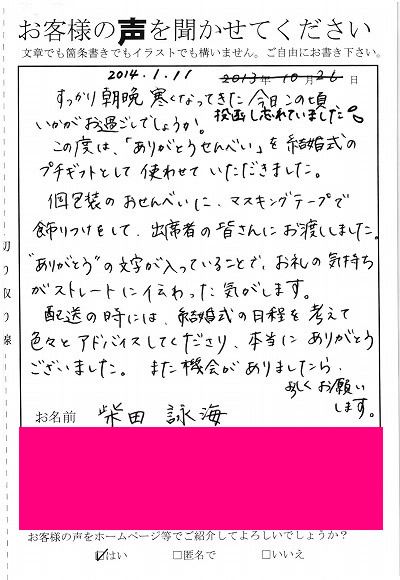 お客様の声を聞かせてください
文章でも箇条書きでもイラストでも構いません。ご自由にお書き下さい。
2014.1.11 2013年10月26日
すっかり朝晩寒くなってきた今日この頃
いかがお過ごしでしょうか。 投函し忘れていました
この度は、「ありがとうせんべい」を結婚式の
プチギフトとして使わせていただきました。
個包装のおせんべいに、マスキングテープで
飾りつけをして、出席者の皆さんにお渡ししました。
"ありがとう"の文字が入っていることで、お礼の気持ち
がストレートに伝わった気がします。
配送の時には、結婚式の日程を考えて
色々とアドバイスしてくださり、本当にありがとう
ございました。また機会がありましたら、
よろしくお願い
します。
お名前 柴田 詠海
お客様の声をホームページ等でご紹介してよろしいでしょうか？
☑はい □匿名で □いいえ
切り取り線